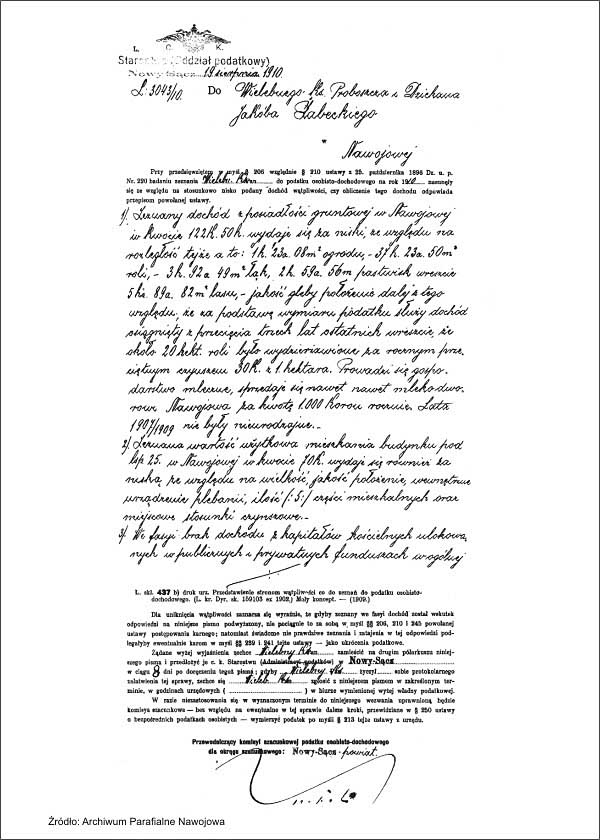 L. C. K.
Starostwo (Oddział podatkowy)
Nowy-Sącz 19 sierpnia 1910.
L: 3043/10. Do Wielebnego Ks. Proboszcza i Dziekana
Jakóba Żabeckiego
w
Nawojowej
Przy przedsięwziętem w myśl § 206 względnie § 210 ustawy z 25. października 1896 Dz. u. p.
Nr. 220 badaniu zeznania Wielebn. Ks. do podatku osobisto-dochodowego na rok 1910 nasunęły
się ze względu na stosunkowo nisko podany dochód wątpliwości, czy obliczenie tego dochodu odpowiada
przepisom powołanej ustawy.
1). Zeznany dochód z posiadłości gruntowej w Nawojowej
w kwocie 122K. 50h. wydaje się za niski, ze względu na
rozległość tejże a to: 1h. 23a. 08m² ogrodu, - 37h. 23a. 50m²
roli, - 3h. 92a 49m² łąk, 2h. 59a. 56m pastwisk wreszcie
5ha. 89a. 82m² lasu, - jakość gleby położenie dalej z tego
względu, że za podstawę wymiaru podatku służy dochód
osiągnięty z przecięcia trzech lat ostatnich wreszcie, że
około 20 hekt. roli było wydzierżawione za rocznym prze-
ciętnym czynszem 30K. z 1 hektara. Prowadzi się gospo-
darstwo mleczne, sprzedaje się nawet nawet mleko dwo-
rowi Nawojowa za kwotę 1.000 Koron rocznie. Lata
1907/1909 nie były nieurodzajne. -
2). Zeznana wartość użytkowa mieszkania budynku pod
lsp 25. w Nawojowej w kwocie 70K. wydaje się również za
niską, ze względu na wielkość, jakość położenie, wewnętrzne
urządzenie plebanii, ilość /:5:/ części mieszkalnych oraz
miejscowe stosunki czynszowe. -
3). W fasyi brak dochodu z kapitałów kościelnych ulokowa-
nych w publicznych i prywatnych funduszach w ogólnej
L. skł. 437 b) druk urz. Przedstawienie stronom wątpliwości co do zeznań do podatku osobisto-
dochodowego. (L. kr. Dyr. sk. 159103 ex 1902.) Mały koncept. — (1909.)
Dla uniknięcia wątpliwości zaznacza się wyraźnie, że gdyby zeznany we fasyi dochód został wskutek
odpowiedzi na niniejsze pismo podwyższony, nie pociągnie to za sobą w myśl §§ 206, 210 i 245 powołanej
ustawy postępowania karnego; natomiast świadome nie prawdziwe zeznania i zatajenia w tej odpowiedzi pod-
legałyby ewentualnie karom w myśl §§ 239 i 241 tejże ustawy — jako ukrócenia podatkowe.
Żądane wyżej wyjaśnienia zechce Wielebny Ks. zamieścić na drugim półarkuszu niniej-
szego pisma i przedłożyć je c. k. Starostwu (Administracyi podatków) w Nowy-Sącz
w ciągu 8 dni po doręczeniu tegoż pisma; gdyby Wielebny Ks. życzył sobie protokolarnego
ustalenia tej sprawy, zechce się Wieleb. Ks. zgłosić z niniejszem pismem w zakreślonym ter-
minie, w godzinach urzędowych ( ) w biurze wymienionej wyżej władzy podatkowej.
W razie niezastosowania się w wyznaczonym terminie do niniejszego wezwania uprawnioną będzie
komisya szacunkowa — bez względu na ewentualne w tej sprawie dalsze kroki, przewidziane w § 250 ustawy
o bezpośrednich podatkach osobistych — wymierzyć podatek po myśli § 213 tejże ustawy z urzędu.
Przewodniczący komisyi szacunkowej podatku osobisto-dochodowego
dla okręgu szacunkowego: Nowy-Sącz-powiat.
Źródło: Archiwum Parafialne Nawojowa